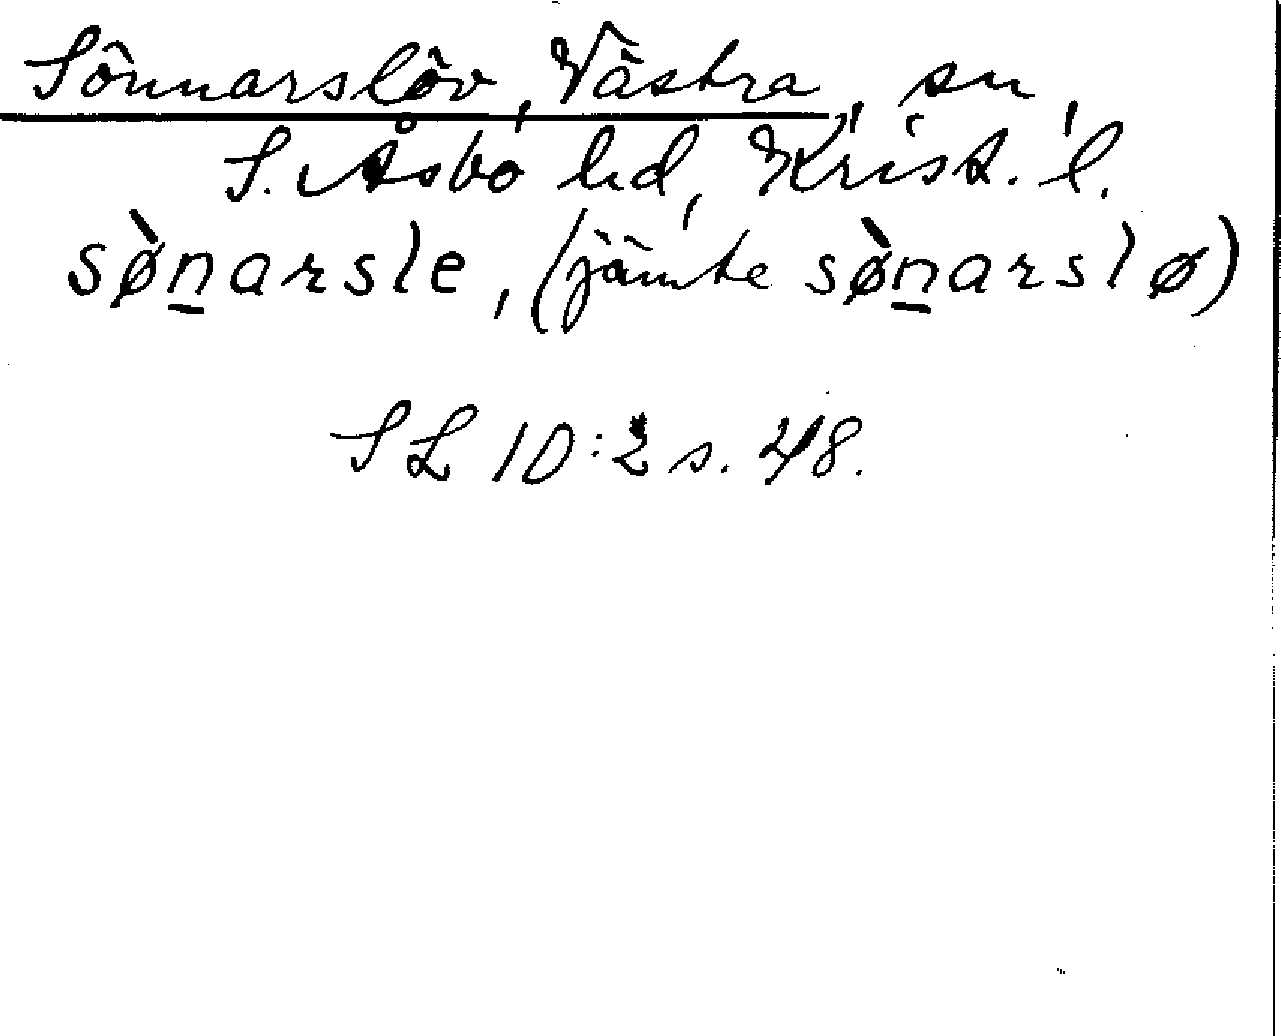 Sönnarslöv, Västra, sn,
S. Åsbo hd, Krist. l.
sø̀n̲arsle, (jämte sø̀n̲arslø)
SL 10:2 s. 48.